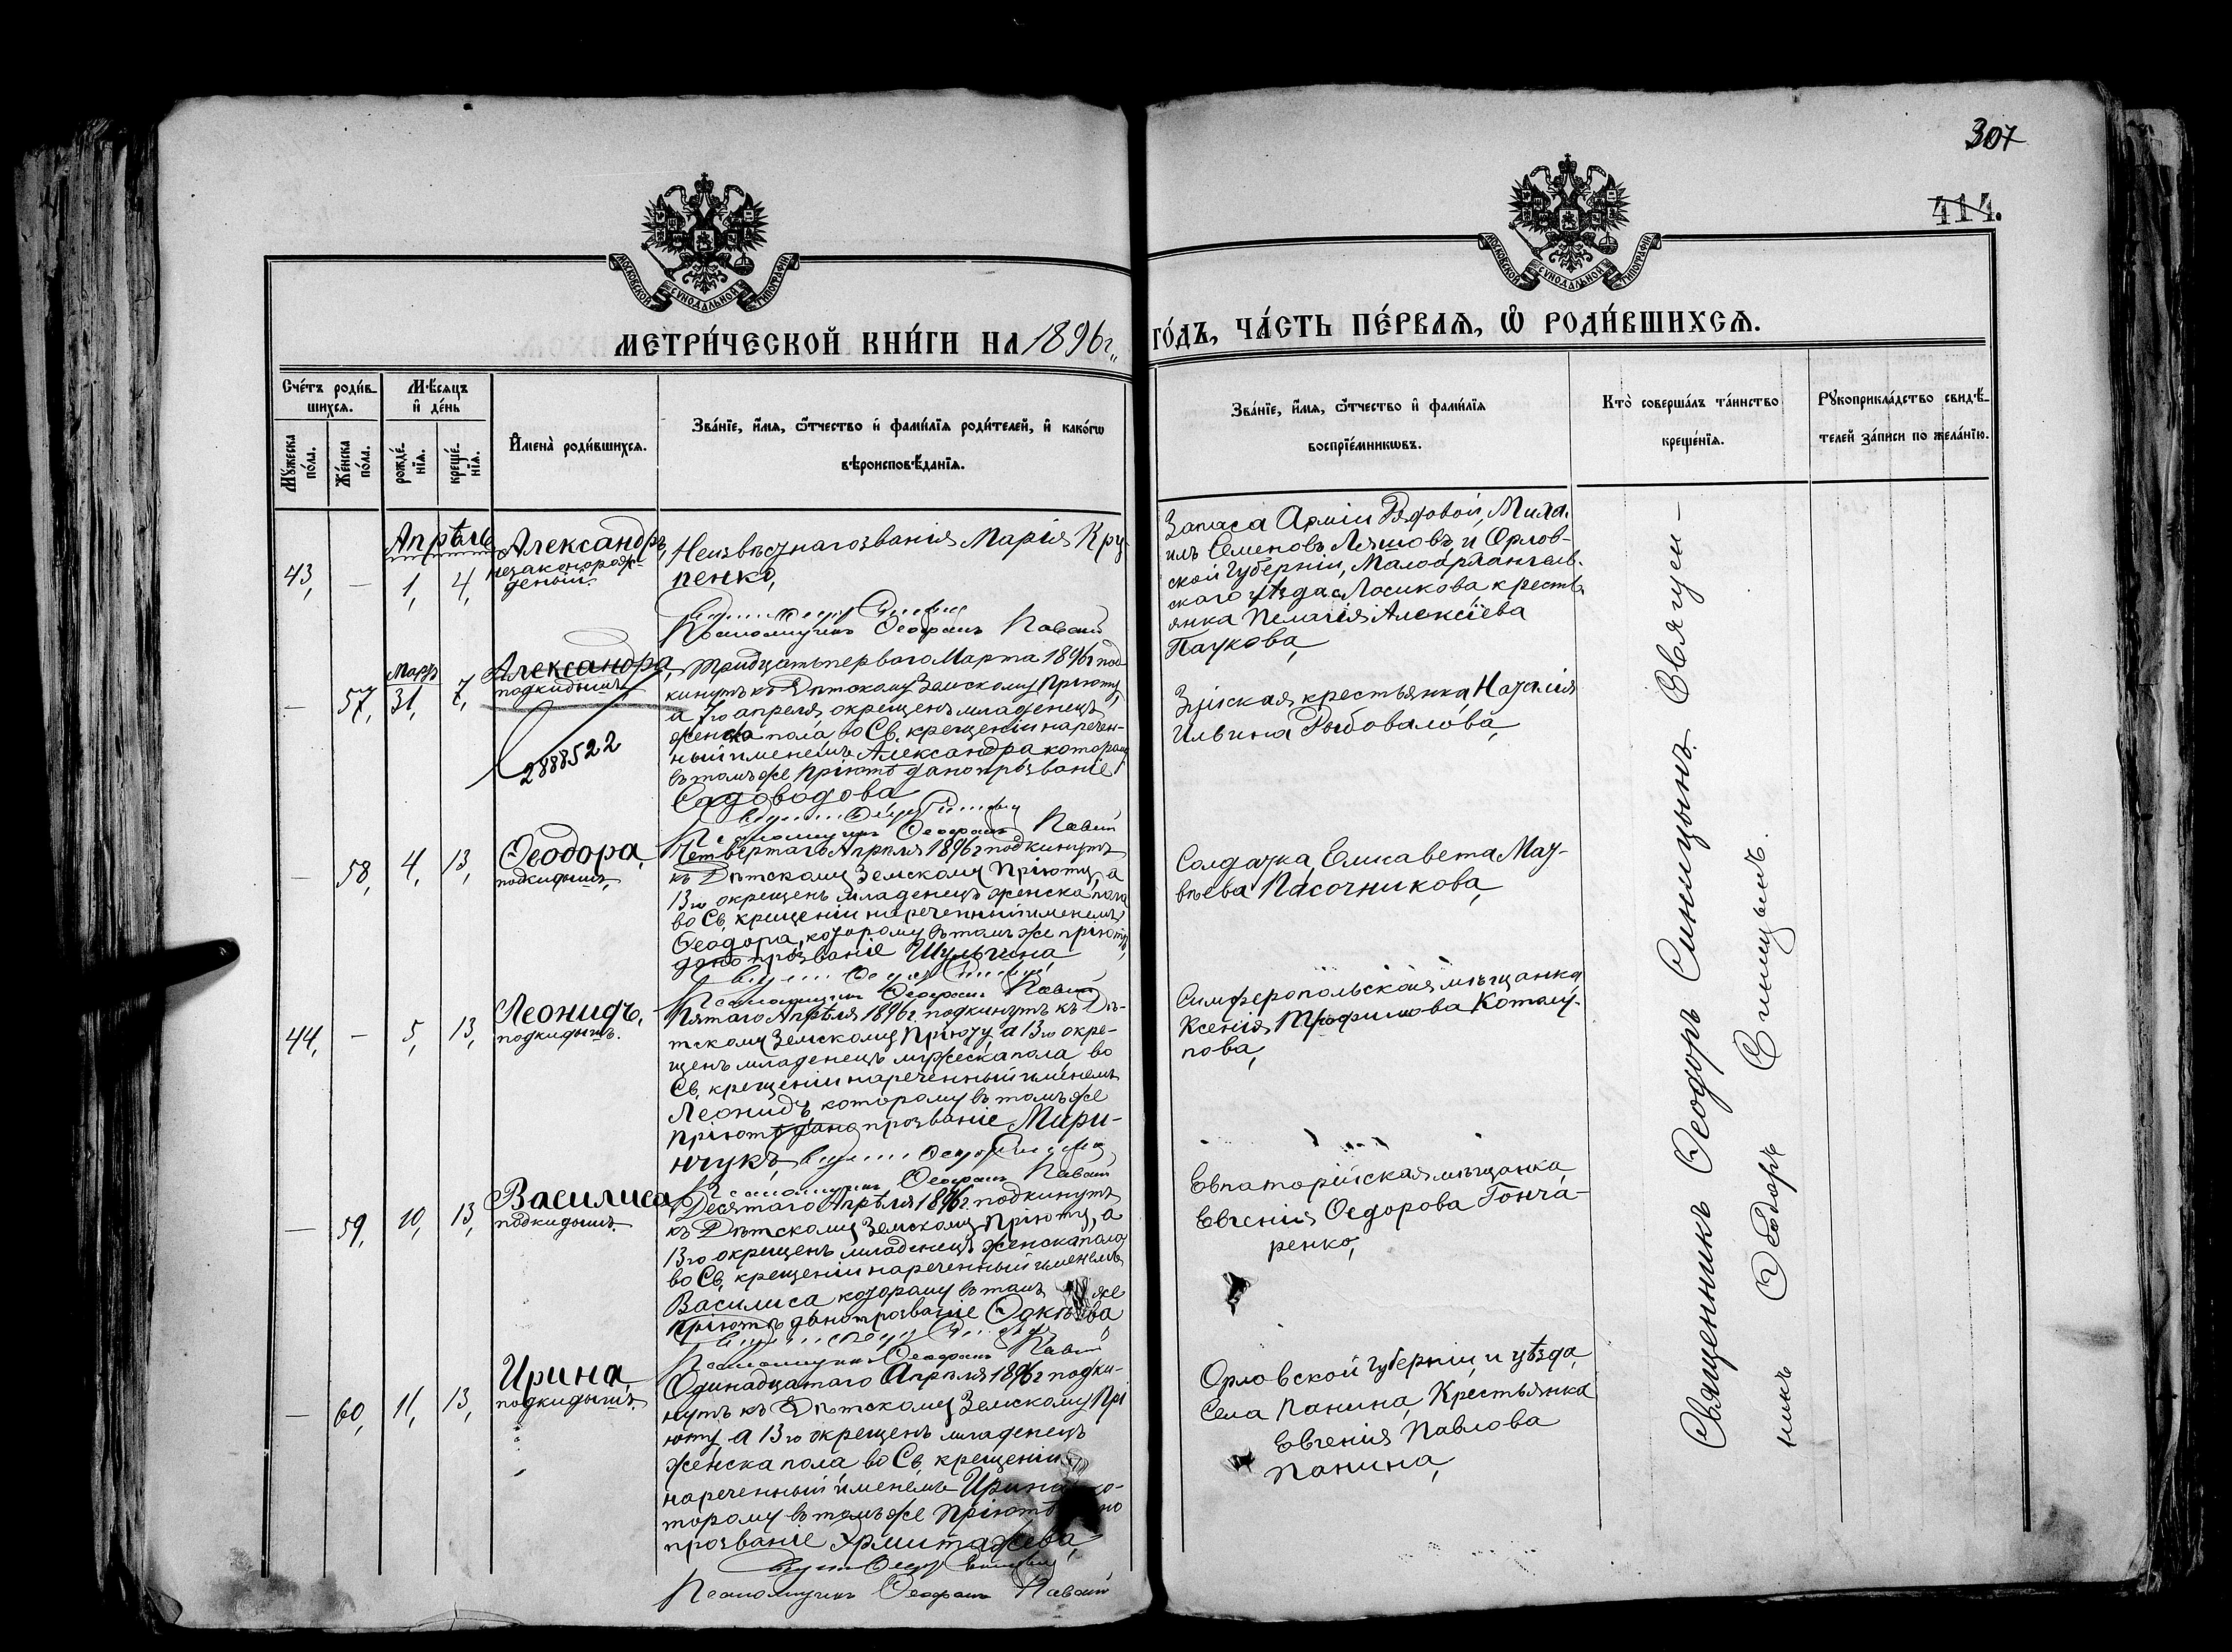 307
414.
МОСКОВСКОЙ СѴНОДАЛЬНОЙ ТИПОГРАФІИ
МОСКОВСКОЙ СѴНОДАЛЬНОЙ ТИПОГРАФІИ
МЕТРИ́ЧЕСКОЙ КНИ́ГИ НА 1896 г.,
ГО́ДЪ, ЧА́СТЬ ПЕ́РВАЯ, Ѿ РОДИ́ВШИХСЯ.
Сче́тъ роди́в-
шихся.
Мꙋжеска по́ла.
Же́нска по́ла.
Мѣ́сяцъ
и҆ де́нь
рожде́-
нїя.
креще́-
нїя.
И҆мена̀ роди́вшихся.
Зва́нїе, и҆́мя, ѻ҆́тчество и҆ фами́лїя роди́телей, и҆ како́гѡ
вѣроисповѣ́данїя.
Зва́нїе, и҆́мя, ѻ҆́тчество и҆ фами́лїя
воспрїе́мникѡвъ.
Кто̀ соверша́лъ та́инство
креще́нїя.
Рꙋкоприкла́дство свидѣ́-
телей за́писи по жела́нїю.
Апрѣль
43,
—
1,
4,
Александръ,
незаконорож-
деный.
Неизвѣстнаго званія Марія Кру
пенко,
Псаломщикъ Ѳеофанъ
Запаса Арміи Рядовой, Миха-
илъ Семеновъ Ляшовъ и Орлов-
ской Губерніи, Малоархангель-
скаго уѣзда с. Лосикова кресть-
янка Пелагія Алексіева
Паукова,
Мартъ
—
57,
31,
7,
Александра,
подкидышъ
2888522
Тридцать перваго Марта 1896 г под-
кинутъ къ Дѣтскому Земскому Пріюту,
а 7го апреля, окрещенъ младенецъ
женска пола во Св. крещеніи наречен-
ный именемъ Александра которой
въ томъ же Пріютѣ дано прозваніе
Садоводова
Псаломщикъ Ѳеофанъ
крестьянка Наталія
Ильина Рыбовалова,
—
58,
4,
13,
Ѳеодора,
подкидышъ,
Четвертаго Апрѣля 1896 г подкинутъ
къ Дѣтскому Земскому Пріюту, а
13го окрещенъ младенецъ женска пола
во Св, крещеніи нареченный именемъ
Ѳеодора, которому въ томъ же пріютѣ,
дано прозваніе Шульгина
Псаломщикъ Ѳеофанъ
Солдатка, Елисавета Мат-
вѣева Пасочникова,
44,
—
5,
13,
Леонидъ,
подкидышъ.
Пятаго Апрѣля 1896 г. подкинутъ къ Дѣ-
тскому Земскому Пріюту, а 13го окре-
щенъ младенецъ мужеска пола, во
Св, крещеніи нареченный именемъ
Леонидъ, которому въ томъ же
Пріютѣ дано прозваніе Мари-
нчукъ,
Псаломщикъ Ѳеофанъ
Симферопольская мѣщанка
Ксенія Трофимова Котлу-
пова,
—
59,
10,
13,
Василиса
подкидышъ.
Десятаго Апрѣля 1896 г подкинутъ
къ Дѣтскому Земскому Пріюту, а
13го окрещенъ младенецъ женска пола
во Св, крещеніи нареченный именемъ
Василиса которому въ томъ же
Пріютѣ дано прозваніе
Псаломщикъ Ѳеофанъ
Евпаторійская мѣщанка
Евгенія Ѳедорова Гонча-
ренко,
—
60,
11,
13,
Ирина,
подкидышъ.
Одинадцатаго Апрѣля 1896 г подки-
нутъ къ Дѣтскому Земскому Прі
юту, а 13го окрещенъ младенецъ
женска пола во Св, крещеніи
нареченный именемъ Ирина ко-
торому въ томъ же Пріютѣ но
прозваніе Эрмитажева,
Псаломщикъ Ѳеофанъ
Орловской Губерніи и уѣзда,
Села Панина, Крестьянка
Евгенія Павлова
Панина,
Священникъ Ѳеодоръ Синицынъ. Священ—
никъ Ѳеодоръ Синицынъ.